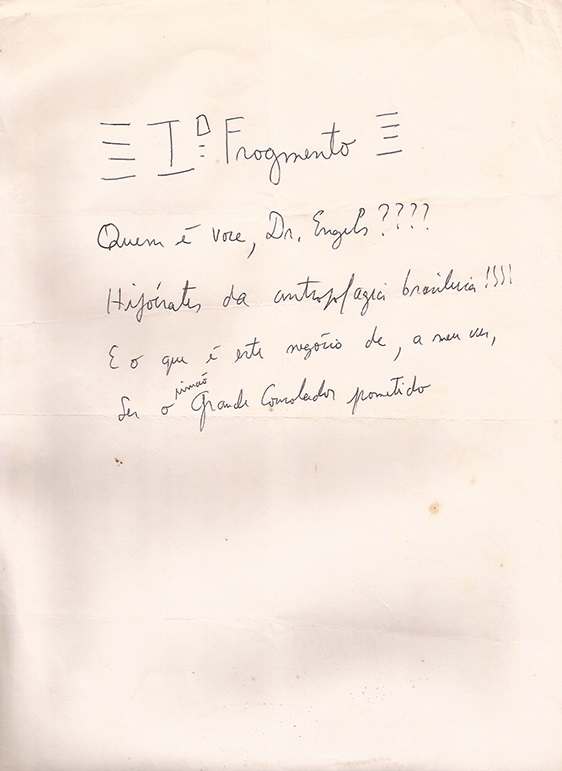 Iº Fragmento
Quem é voce, Dr. Engels????
Hipócrates da antropofagia brasileira!!!!
E o que é este negócio de, a meu ver,
irmaõ
Ser o Grande Consolador prometido